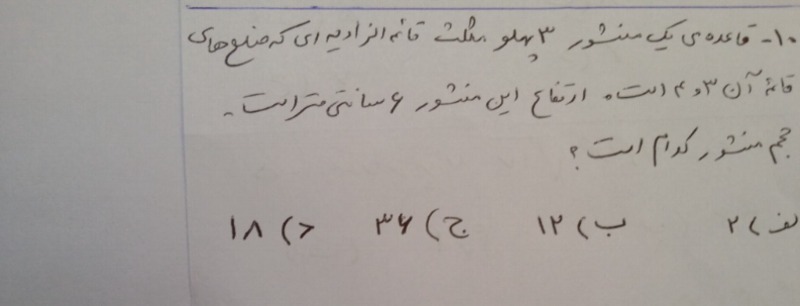 ۱۰- قاعده‌ی یک منشور ۳ پهلو مثلث قائم الزاویه ای که ضلع های
قائمهٔ آن ۳ و ۴ است. ارتفاع این منشور ۶ سانتی متر است.
حجم منشور کدام است؟
الف) ۲ ب) ۱۲ ج) ۳۶ د) ۱۸